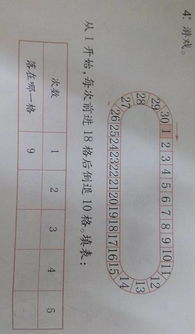 4. 游戏。
30 1 2 3 4 5 6 7 8 9 10 11
29 12
28 13
27 14
26 25 24 23 22 21 20 19 18 17 16 15
从 1 开始,每次前进 18 格后倒退 10 格。填表:
次数 1 2 3 4 5
落在哪一格 9